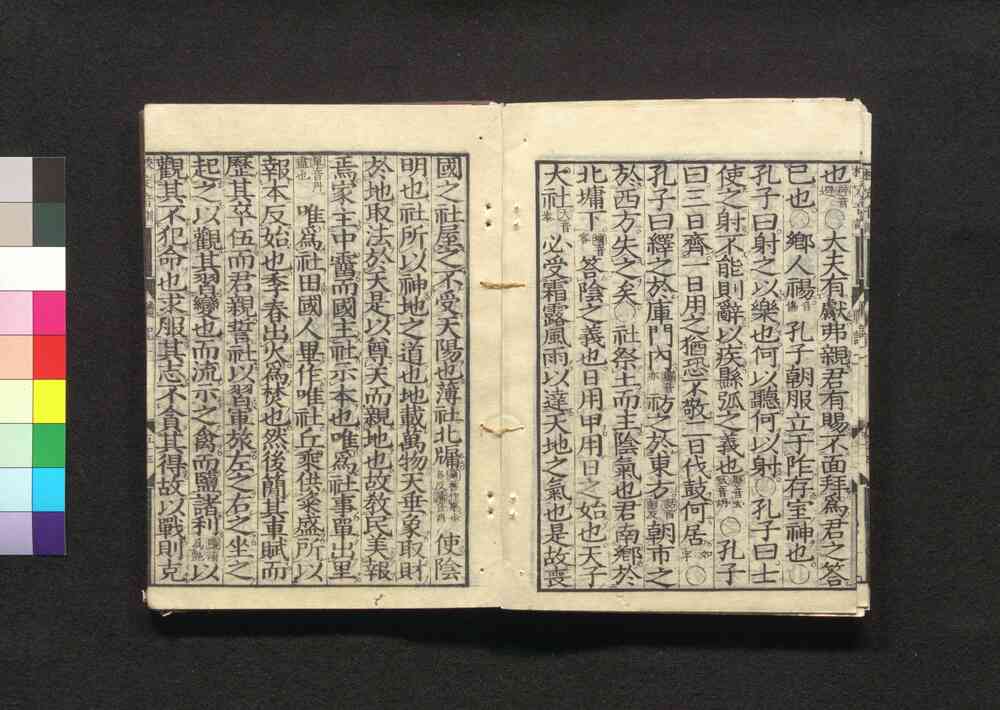 也○大夫有獻弗親君有賜不面拜爲君之答
已也○鄉人禓孔子朝服立于阼存室神也○
孔子曰射之以樂也何以聽何以射○孔子曰士
使之射不能則辭以疾縣弧之義也○孔子
曰三日齊一日用之猶恐不敬二日伐鼓何居○
孔子曰繹之於庫門內祊之於東方朝市之
於西方失之矣○社祭土而主陰氣也君南鄉於
北墉下答陰之義也日用甲用日之始也天子
大社必受霜露風雨以達天地之氣也是故喪
國之社屋之不受天陽也薄社北牖使陰
明也社所以神地之道也地載萬物天垂象取財
於地取法於天是以尊天而親地也故教民美報
焉家主中霤而國主社示本也唯爲社事單出里
唯爲社田國人畢作唯社丘乘供粢盛所以
報本反始也季春出火爲焚也然後簡其車賦而
歷其卒伍而君親誓社以習軍旅左之右之坐之
起之以觀其習變也而流示之禽而鹽諸利以
觀其不犯命也求服其志不貪其得故以戰則克